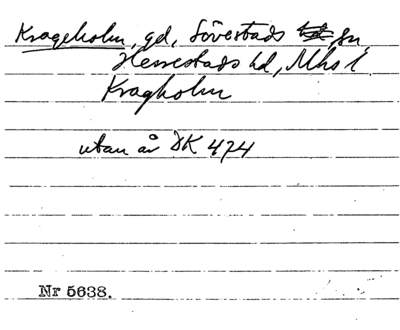 Krageholm, gd, Sövestads sn
Herrestads hd, Mhs l.
Kragholm
utan år DK 474
Nr 5638.